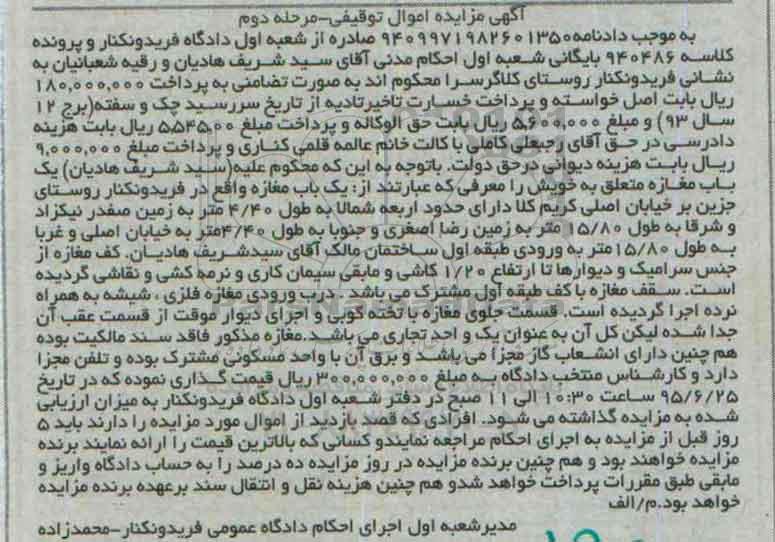 آگهی مزایده اموال توقیفی-مرحله دوم
به موجب دادنامه۹۴۰۹۹۷۱۹۸۲۶۰۱۳۵۰ صادره از شعبه اول دادگاه فریدونکنار و پرونده
کلاسه ۹۴۰۴۸۶ بایگانی شعبه اول احکام مدنی آقای سید شریف هادیان و رقیه شعبانیان به
نشانی فریدونکنار روستای کلاگرسرا محکوم اند به صورت تضامنی به پرداخت ۱۸۰,۰۰۰,۰۰۰
ریال بابت اصل خواسته و پرداخت خسارت تاخیرتادیه از تاریخ سررسید چک و سفته(برج ۱۲
سال ۹۳) و مبلغ ۵,۶۰۰,۰۰۰ ریال بابت حق الوکاله و پرداخت مبلغ ۵,۵۴۵,۰۰ ریال بابت هزینه
دادرسی در حق آقای رجبعلی کاملی با کالت خانم عالمه قلمی کناری و پرداخت مبلغ ۹,۰۰۰,۰۰۰
ریال بابت هزینه دیوانی درحق دولت. باتوجه به این که محکوم علیه(سید شریف هادیان) یک
باب مغازه متعلق به خویش را معرفی که عبارتند از: یک باب مغازه واقع در فریدونکنار روستای
جزین بر خیابان اصلی کریم کلا دارای حدود اربعه شمالا به طول ۴/۴۰ متر به زمین صفدر نیکزاد
و شرقا به طول ۱۵/۸۰ متر به زمین رضا اصغری و جنوبا به طول ۴/۴۰متر به خیابان اصلی و غربا
به طول ۱۵/۸۰متر به ورودی طبقه اول ساختمان مالک آقای سیدشریف هادیان. کف مغازه از
جنس سرامیک و دیوارها تا ارتفاع ۱/۲۰ کاشی و مابقی سیمان کاری و نرمه کشی و نقاشی گردیده
است. سقف مغازه با کف طبقه اول مشترک می باشد . درب ورودی مغازه فلزی ، شیشه به همراه
نرده اجرا گردیده است. قسمت جلوی مغازه با تخته کوبی و اجرای دیوار موقت از قسمت عقب آن
جدا شده لیکن کل آن به عنوان یک واحد تجاری می باشد.مغازه مذکور فاقد سند مالکیت بوده
هم چنین دارای انشعاب گاز مجزا می باشد و برق آن با واحد مسکونی مشترک بوده و تلفن مجزا
دارد و کارشناس منتخب دادگاه به مبلغ ۳۰۰,۰۰۰,۰۰۰ ریال قیمت گذاری نموده که در تاریخ
۹۵/۶/۲۵ ساعت ۱۰:۳۰ الی ۱۱ صبح در دفتر شعبه اول دادگاه فریدونکنار به میزان ارزیابی
شده به مزایده گذاشته می شود. افرادی که قصد بازدید از اموال مورد مزایده را دارند باید ۵
روز قبل از مزایده به اجرای احکام مراجعه نمایندو کسانی که بالاترین قیمت را ارائه نمایند برنده
مزایده خواهند بود و هم چنین برنده مزایده در روز مزایده ده درصد را به حساب دادگاه واریز و
مابقی طبق مقررات پرداخت خواهد شدو هم چنین هزینه نقل و انتقال سند برعهده برنده مزایده
خواهد بود.م/الف
مدیرشعبه اول اجرای احکام دادگاه عمومی فریدونکنار-محمدزاده